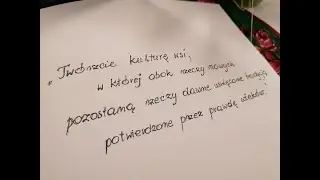 "Twórzcie kulturę wsi,
w której obok rzeczy nowych
pozostaną rzeczy dawne uświęcone tradycją
potwierdzone przez prawdę wieków."